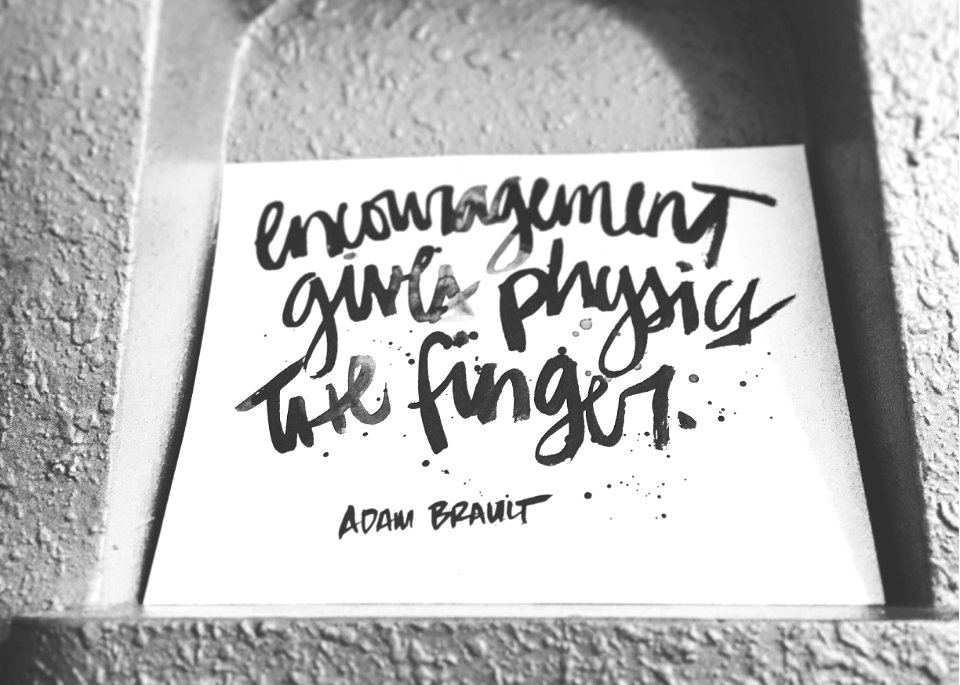 encouragement
gives physics
the finger.
ADAM BRAULT